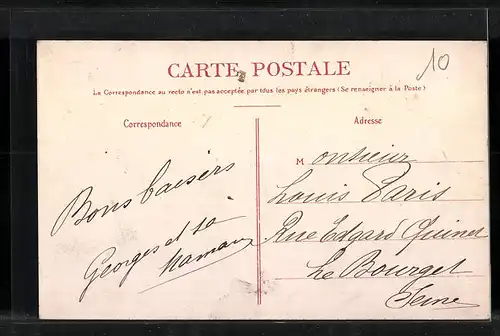 10
CARTE POSTALE
La Correspondance au recto n'est pas acceptée par tous les pays étrangers (Se renseigner à la Poste)
Correspondance
Adresse
Bons baisers
Georges et sa
Maman
Monsieur
Louis Paris
Rue Edgard Quinet
Le Bourget
Seine